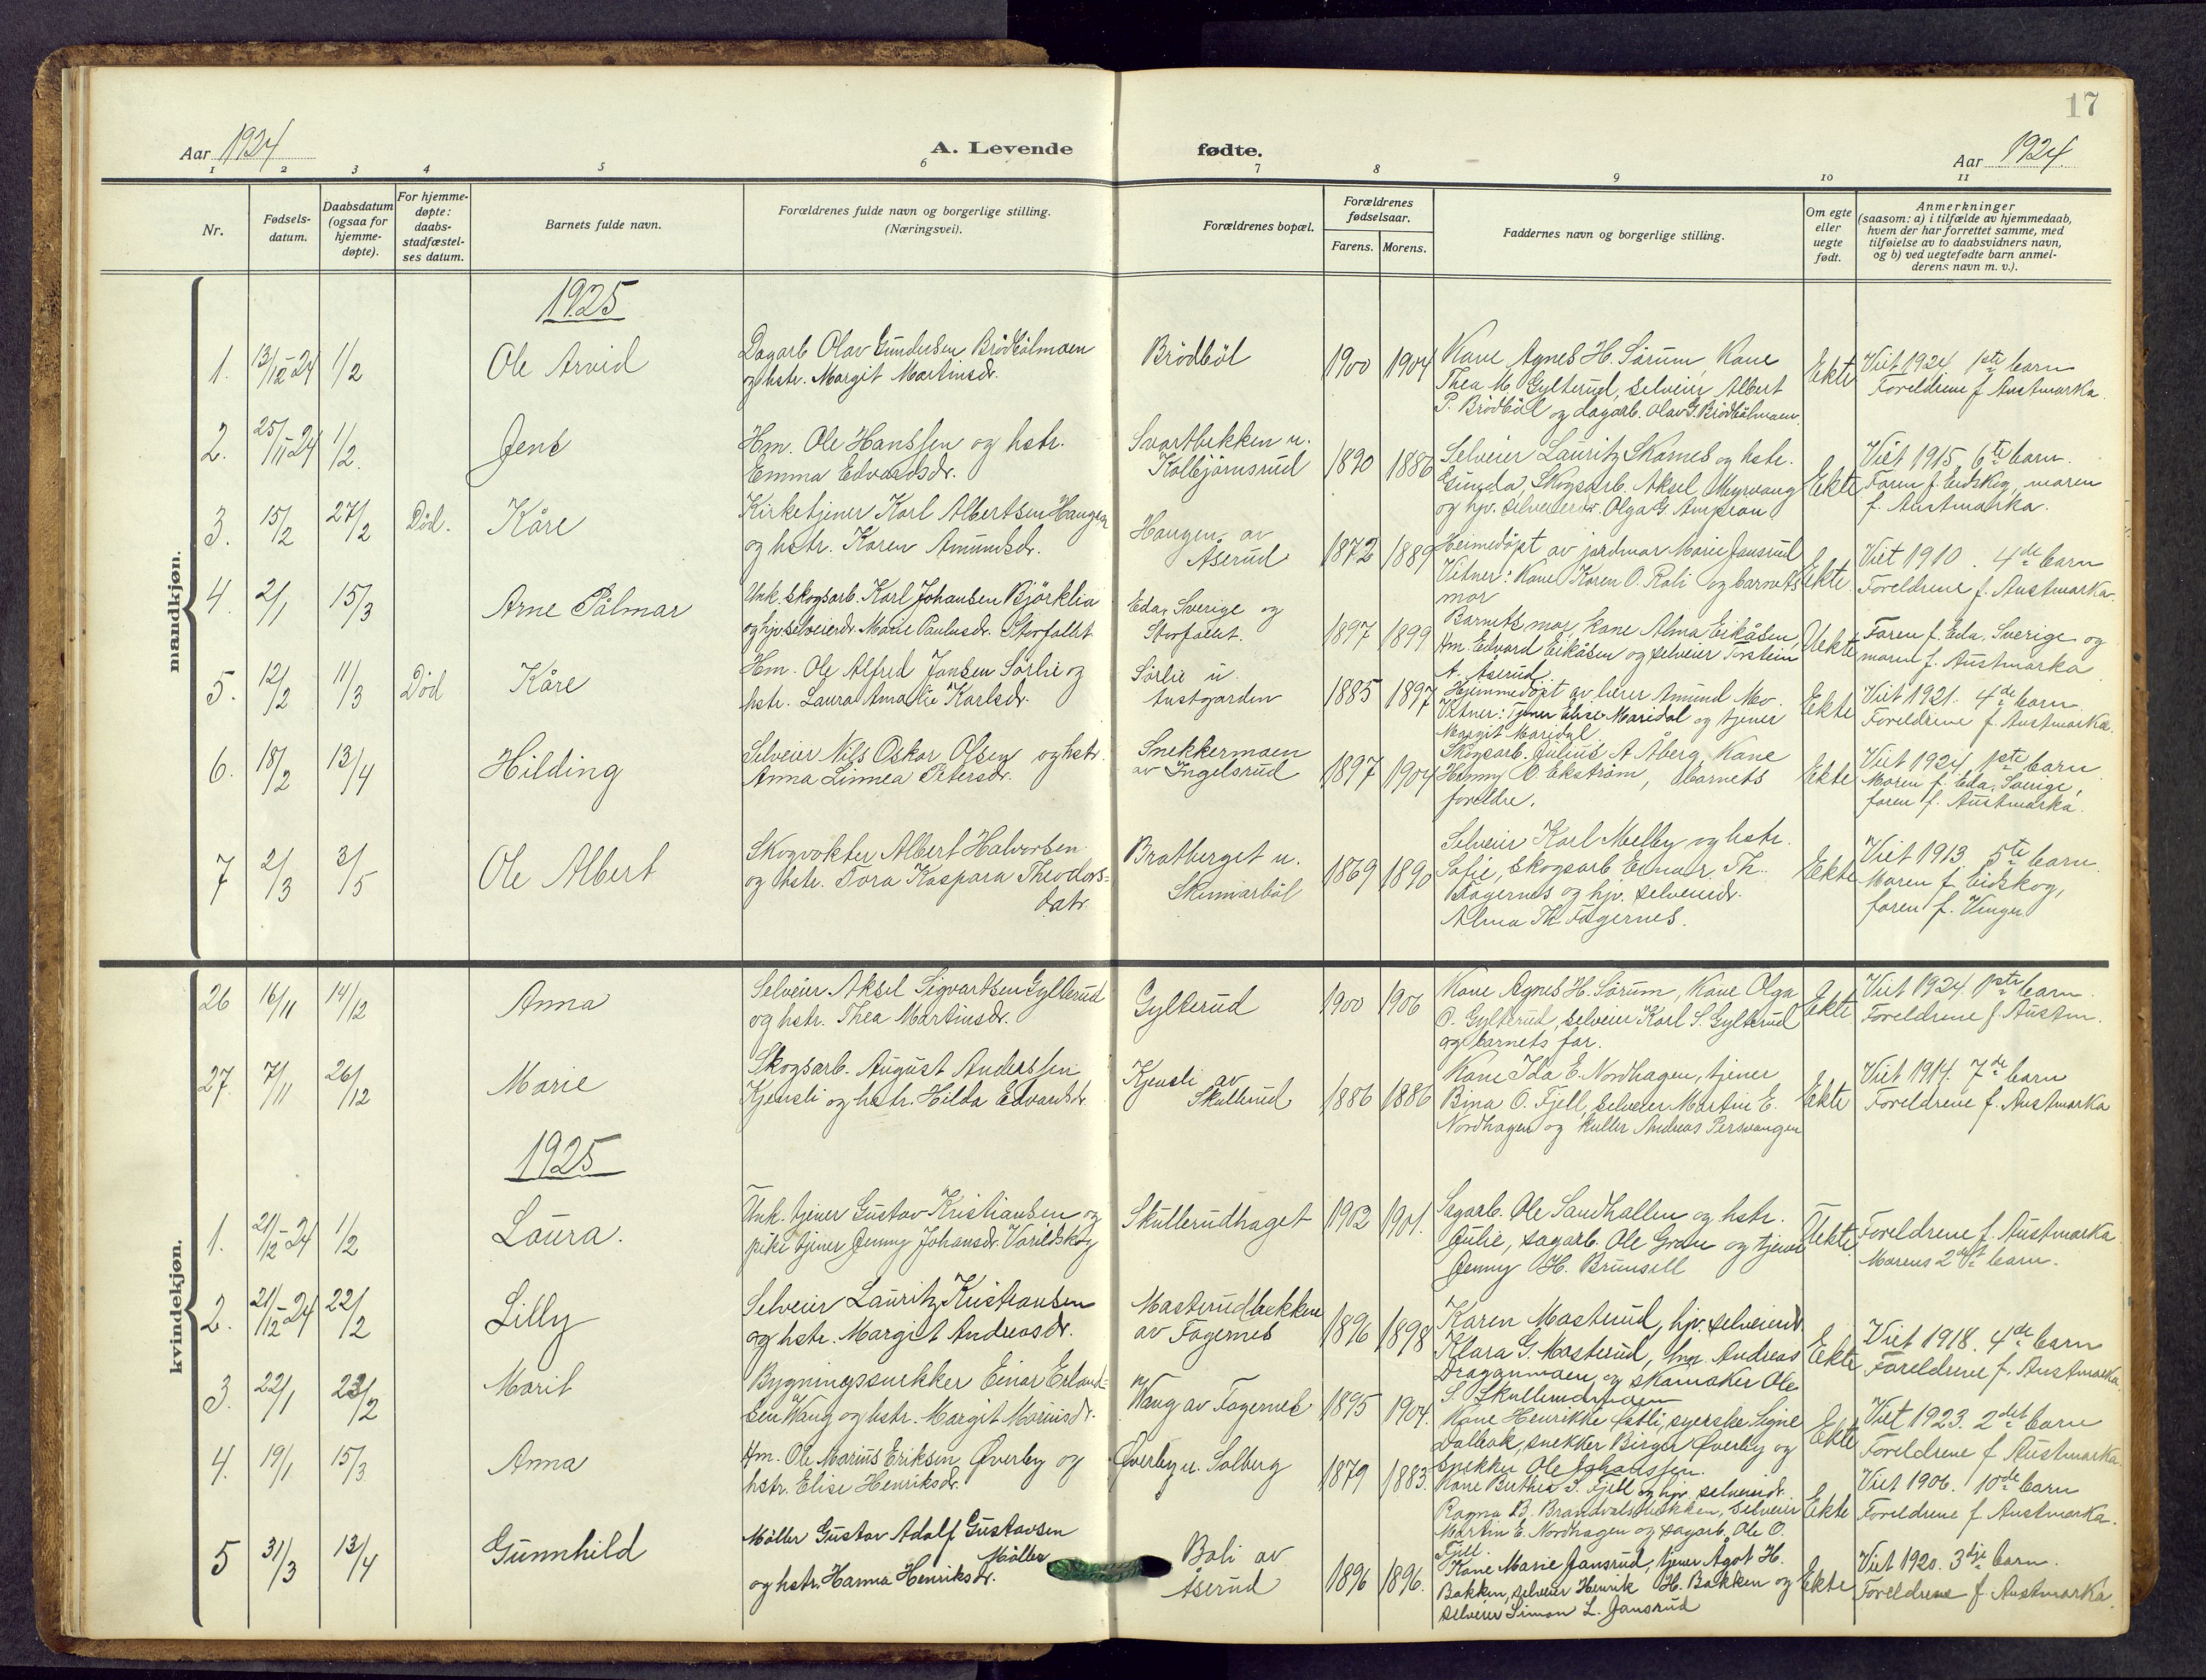 17
Aar 1924
A. Levende
fødte.
Aar 1924.
1 2 3 4 5 6 7 8 9 10 11
Nr.
Fødsels-
datum.
Daabsdatum
(ogsaa for
hjemme-
døpte).
For hjemme-
døpte:
daabs-
stadfæstel-
ses datum.
Barnets fulde navn.
Forældrenes fulde navn og borgerlige stilling.
(Næringsvei).
Forældrenes bopæl.
Forældrenes
fødselsaar.
Farens. Morens.
Faddernes navn og borgerlige stilling.
Om egte
eller
uegte
født.
Anmerkninger
(saasom: a) i tilfælde av hjemmedaab,
hvem der har forrettet samme, med
tilføielse av to daabsvidners navn,
og b) ved uegtefødte barn anmel-
derens navn m. v.).
mandkjøn.
1925
1. 13/12-24 1/2 Ole Arvid
Dagarb. Olav Gundersen Brödbölmoen
og hstr. Margit Martinsdr.
Brödböl
1900 1904
Kone Agnes H. Sörum, Kone
Thea M. Gylterud, selveier Albert
P. Brödböl og dagarb. Olav G. Brödbölmoen.
Ekte
Viet 1924. 1ste barn
Foreldrene f. Austmarka.
2. 25/11-24 1/2. Jens
Hm. Ole Hanssen og hstr.
Emma Edvardsdr.
Svartbekken u.
Kolbjörnsrud
1890 1886
Selveier Lauritz Skarnes og hstr.
Gunda, Skogsarb. Aksel Myrvang
og hjv. selveierdr. Olga G.
Ekte
Viet 1915 6te barn.
Faren f. Eidskog, moren
f. Austmarka.
3. 15/2 27/2 Död. Kåre
Kirketjener Karl Albertsen Haugen
og hstr. Karen Amundsdr.
Haugen av
Åserud
1872 1889
Heimedöpt av jordmor Marie Jansrud
Vitner: Kone Karen O. Roli og barnets
mor
Ekte.
Viet 1910. 4de barn
Foreldrene f. Austmarka.
4. 2/1 15/3 Arne Pålmar
Unk. skogsarb. Karl Johansen Björklia
og hjv. selveierdr. Marie Paulusdr. Storfallet
Eda, Sverige og
Storfallet.
1897 1899
Barnets mor, kone Alma Eikåsen,
Hm. Edvard Eikåsen og selveier Torstein
A. Åserud.
Uekte
Faren f. Eda, Sverige og
moren f. Austmarka
5. 12/2 11/3 Död Kåre
Hm. Ole Alfred Jansen Sörlie og
hstr. Laura Amalie Karlsdr.
Sörlie u.
Austgarden
1885 1897
Hjemmedöpt av lærer Amund Mo.
Vitner: Tjener Elise Maridal og tjener
Margit Maridal.
Ekte
Viet 1921. 4de barn.
Foreldrene f. Austmarka.
6. 18/2 13/4 Hilding
Selveier Nils Oskar Olsen og hstr.
Anna Linnea Petersdr.
Snekkermoen
av Ingelsrud
1897 1904
Skogsarb. Julius A Åberg, Kone
Hanny O. Ekström, Barnets
foreldre.
Ekte
Viet 1924 1ste barn
Moren f. Eda, Sverige,
faren f. Austmarka.
7 2/3 3/5 Ole Albert
Skogvokter Albert Halvorsen
og hstr. Tora Kaspara Theodors-
datr.
Bratberget u.
Skinnarböl
1869 1890
Selveier Karl Melby og hstr.
Sofie, skogsarb Einar Th.
Fagernes og hjv. selveierdr.
Alma Th Fagernes.
Ekte
Viet 1913. 5te barn.
Moren f. Eidskog,
faren f. Vinger
kvindekjøn.
26 16/11 14/12 Anna
Selveier Aksel Sigvartsen Gylterud
og hstr. Thea Martinsdr.
Gylterud
1900 1906
Kone Agnes H. Sörum, Kone Olga
O. Gylterud, selveier Karl S. Gylterud
og barnets far.
Ekte
Viet 1924. 1ste barn.
Foreldrene f. Austm.
27. 7/11 26/12 Marie
Skogsarb. August Anderssen
Kjensli og hstr. Hilda Edvardsdr.
Kjensli av
Skullerud
1886 1886
Kone Ida E. Nordhagen, tjener
Bina O. Fjell, selveier Martin E.
Nordhagen og kuller Andreas Persvangen
Ekte
Viet 1914. 7de barn
Foreldrene f. Austmarka
1925
1. 21/12-24 1/2 Laura.
Unk. tjener Gustav Kristiansen og
pike tjener Jenny Johansdr. Varildskog
Skullerudhaget
1902 1901.
Sagarb. Ole Sandhallen og hstr.
Julie, sagarb. Ole Gran og tjener
Jenny H. Brunsell
Uekte.
Foreldrene f. Austmarka
Morens 2det barn.
2. 21/12-24 22/2 Lilly
Selveier Lauritz Kristiansen
og hstr. Margit Andreasdr.
Masterudbekken
av Fagernes
1896 1898
Karen Masterud, hjv. selveierdr.
Klara G. Masterud, Andreas
og skomaker Ole
S. Skullerudmoen
Ekte
Viet 1918. 4de barn
Foreldrene f. Austmarka.
3. 22/1 22/2 Marit
Bygningssnekker Einar Erland-
sen Wang og hstr. Margit Mariusdr.
Wang av Fagernes
1895 1904.
Kone Henrikke Østli, syerske Signe
Dalbak, snekker Birger Øverby og
snekker Ole Johanssen.
Ekte
Viet 1923. 2det barn
Foreldrene f Austmarka.
4. 19/1 15/3 Anna
Hm. Ole Marius Eriksen Øverby og
hstr. Elise Henriksdr.
Øverby u. Solberg
1879 1883.
Kone Berthe S. Fjell og hjv. selveierdr.
Ragna B. Brandvalsbekken, selveier
Martin E. Nordhagen og sagarb. Ole O.
Fjell.
Ekte
Viet 1906. 10de barn
Foreldrene f Austmarka.
5 31/3 13/4 Gunnhild
Möller Gustav Adolf Gustavsen
Möller
og hstr. Hanna Henriksdr.
Bali av
Åserud
1896 1896.
Kone Marie Jansrud, tjener Ågot H.
Bakken, selveier Henrik H. Bakken og
selveier Simon L. Jansrud
Ekte
Viet 1920. 3dje barn.
Foreldrene f Austmarka.